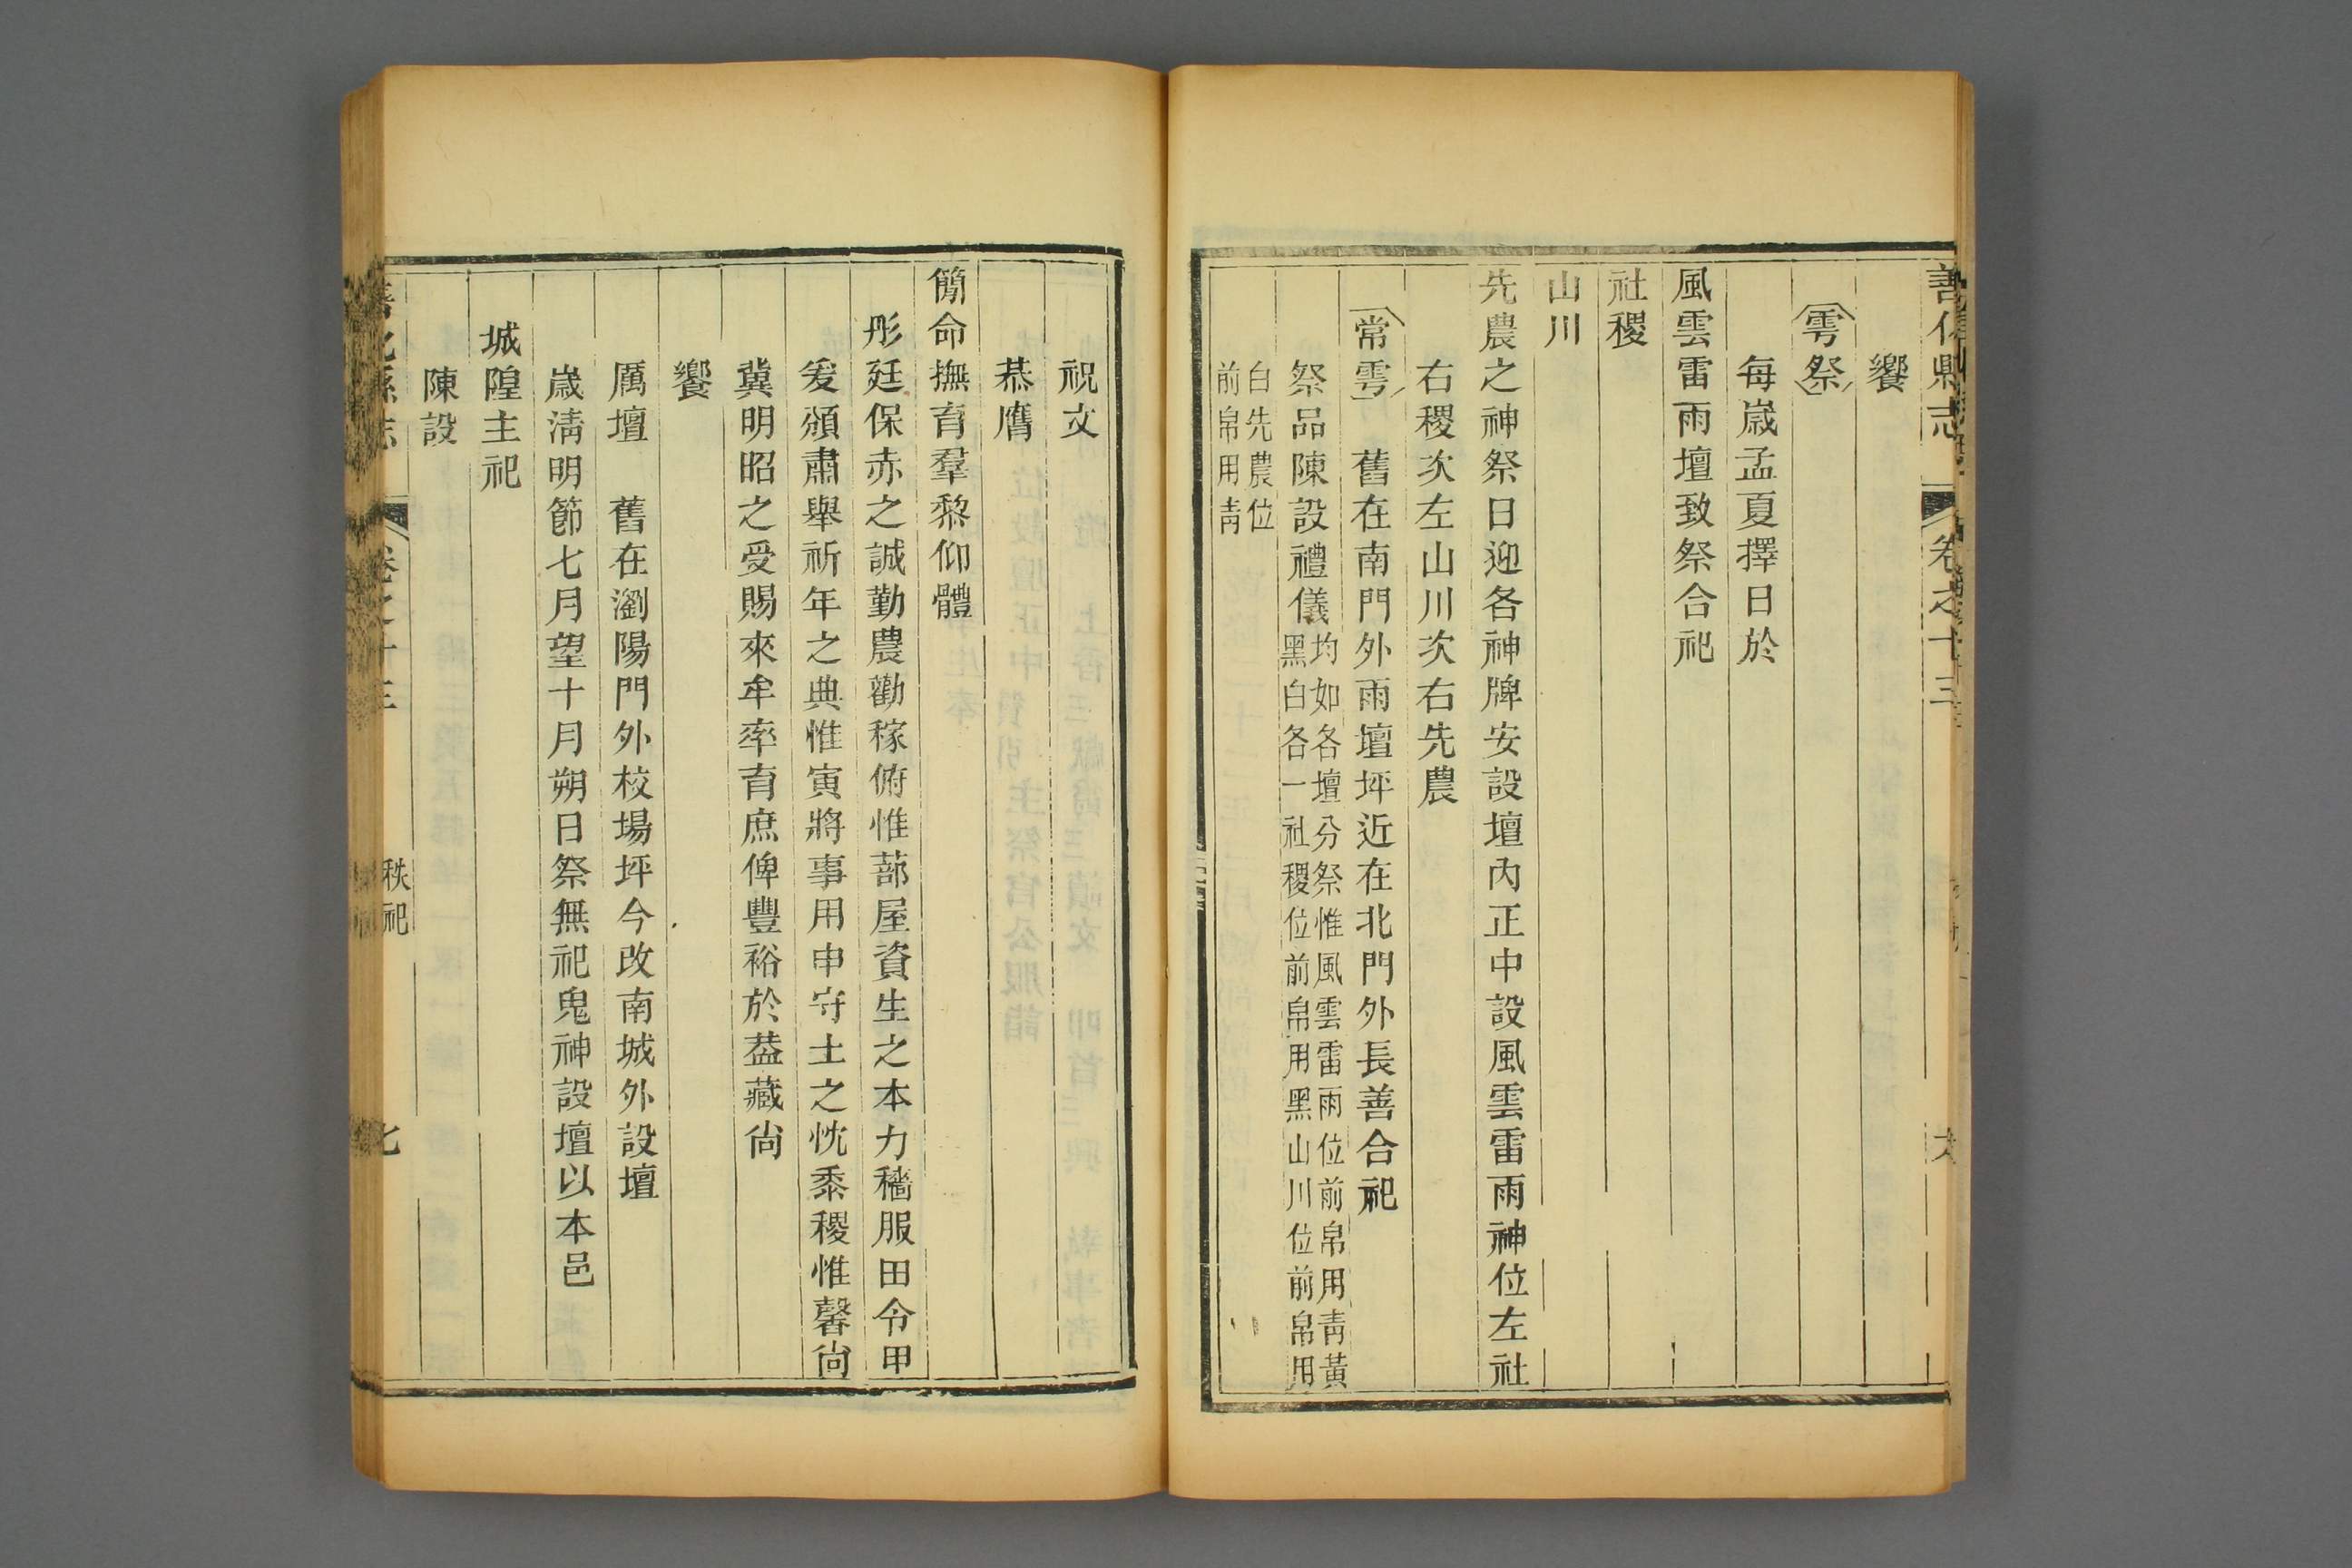 善化縣志
卷之十三
饗
雩祭
每歲孟夏擇日於
風雲雷雨壇致祭合祀
社稷
山川
先農之神祭日迎各神牌安設壇內正中設風雲雷雨神位左社
右稷次左山川次右先農
常雩 舊在南門外雨壇坪近在北門外長善合祀
祭品陳設禮儀
均如各壇分祭惟風雲雷雨位前帛用靑黃
黑白各一社稷位前帛用黑山川位前帛用
白先農位
前帛用靑
祝文
恭膺
簡命撫育羣黎仰體
彤廷保赤之誠勤農勸稼俯惟蔀屋資生之本力穡服田令甲
爰頒肅舉祈年之典惟寅將事用申守土之忱黍稷惟馨尙
冀明昭之受賜來牟率育庶俾豐裕於葢藏尙
饗
厲壇 舊在瀏陽門外校場坪今改南城外設壇
歲淸明節七月望十月朔日祭無祀鬼神設壇以本邑
城隍主祀
陳設
秩祀